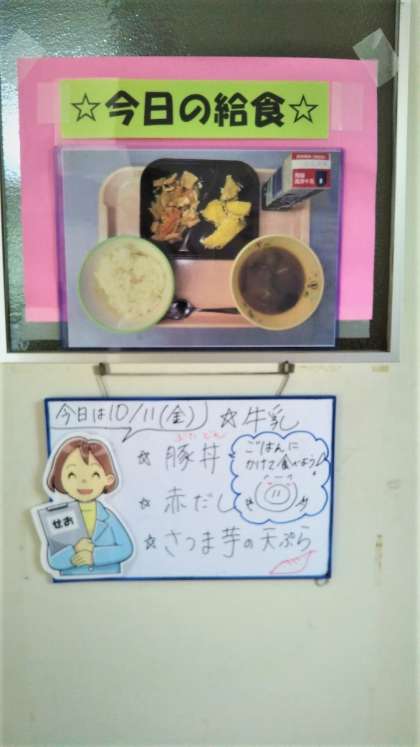 ☆今日の給食☆
今日は10/11(金)
☆牛乳
ぶた どん
☆豚丼
ごはんに
かけて食べよう!
☆赤だし
☆さつま芋の天ぷら
せお